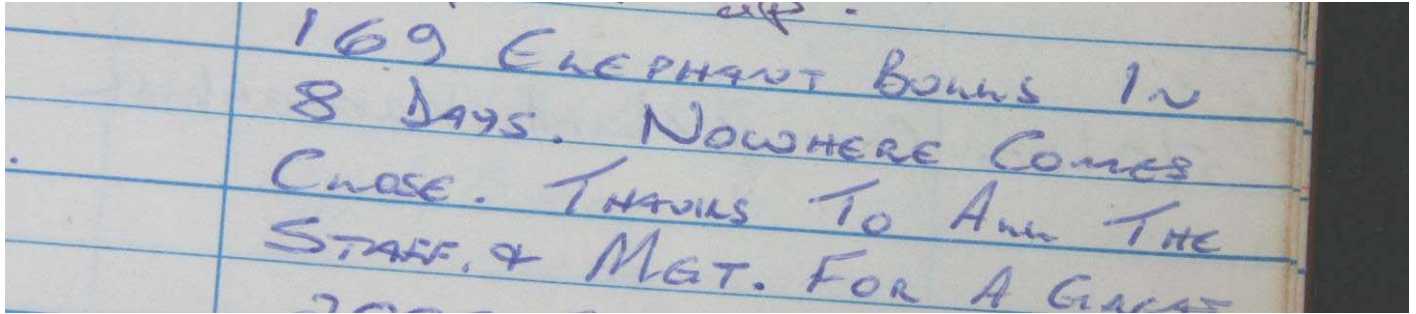 169 ELEPHANT BULLS IN
8 DAYS. NOWHERE COMES
CLOSE. THANKS TO ALL THE
STAFF. & MGT. FOR A GREAT